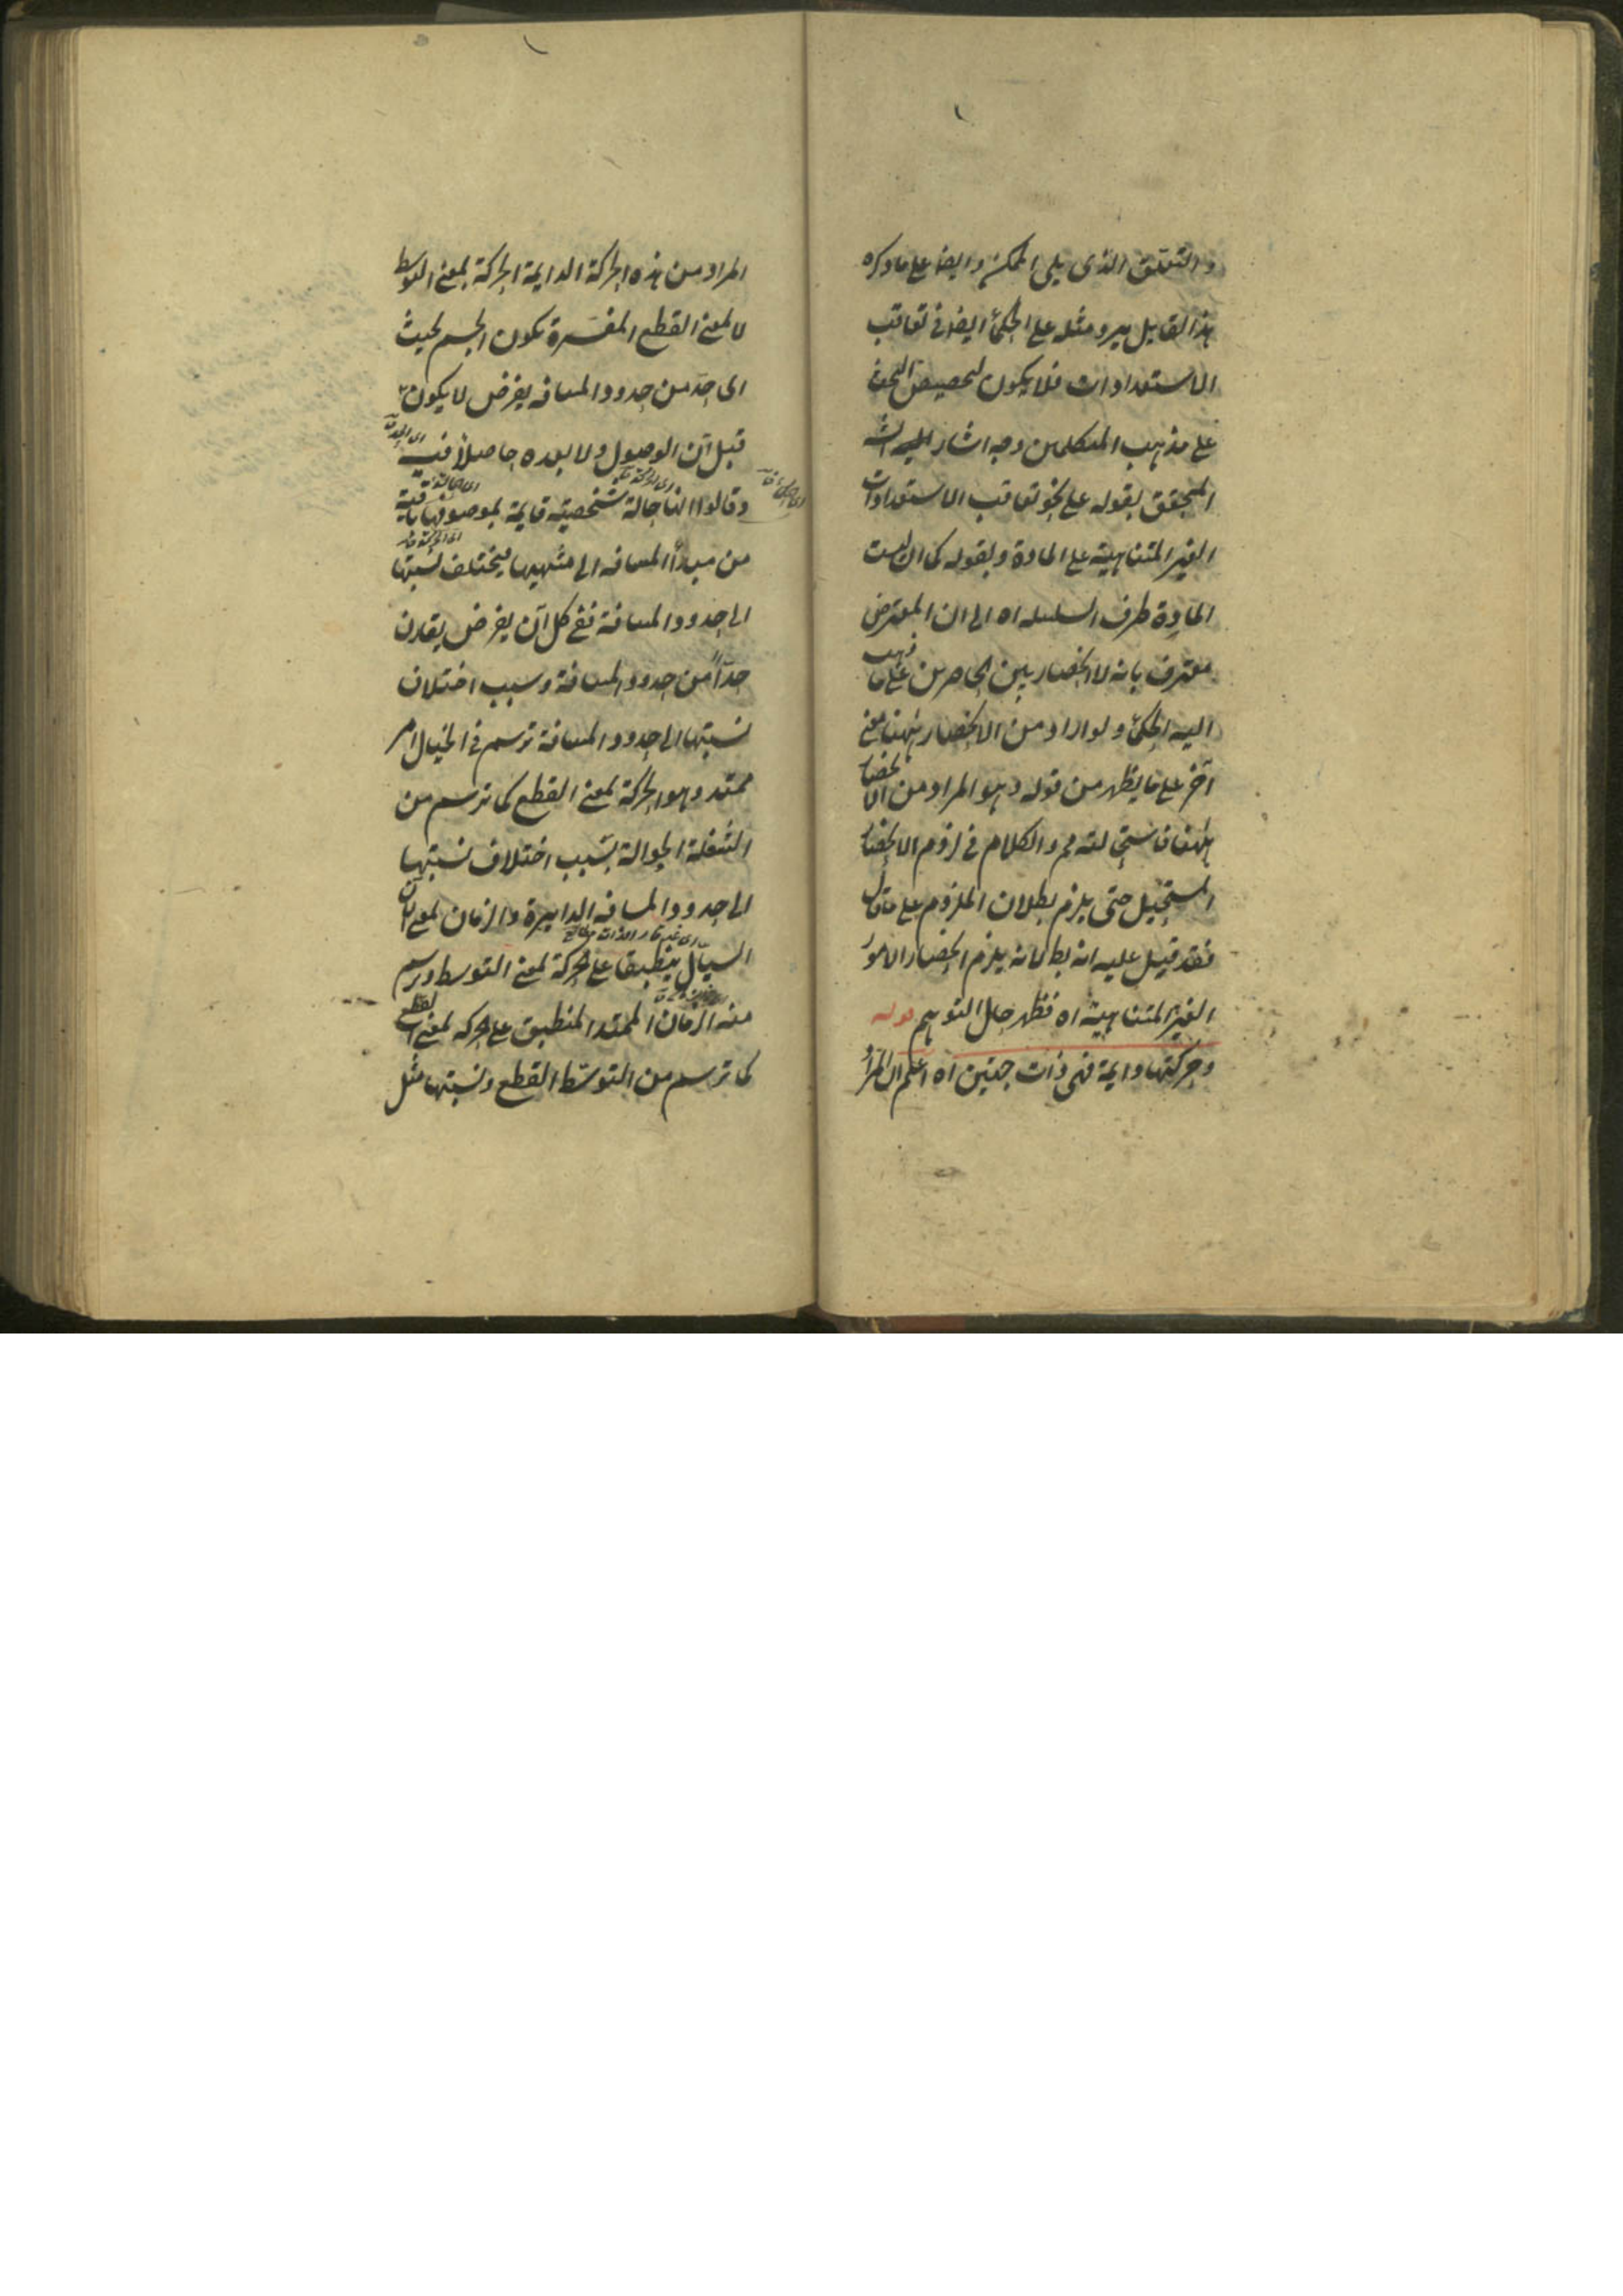 والتعلق الذى يلى الممكن وايضا على ما ذكره
هذا القايل يرد مثله على الحكماء ايضا فى تعاقب
الاستعدادات فلا يكون لتخصيص البحث
على مذهب المتكلمين وجه اشار اليه الش
المحقق بقوله على نحو تعاقب الاستعدادات
الغير المتناهية على المادة وبقوله كما ان ليست
المادة طرف السلسله اه الى ان المعترض
معترف بانه لا انحصار بين الحاصرين على ما ذهب
اليه الحكماء ولو اراد من الانحصار ههنا معنى
آخر على ما يظهر من قوله وهو المراد من الانحصار
ههنا فاستحالته مم والكلام فى لزوم الانحصار
المستحيل حتى يلزم بطلان الملزوم على ما قال
فقد قيل عليه انه بطلانه يلزم انحصار الامور
الغير المتناهية اه فظهر حال التوهم قوله
وحركتها دايمة فهى ذات جهتين اه اعلم ان المراد
المراد من هذه الحركة الدايمة الحركة بمعنى التوسط
لا بمعنى القطع المفسرة بكون الجسم بحيث
اى حد من حدود المسافه يفرض لا يكون
قبل آن الوصول ولا بعده حاصلا فيه
وقالوا انها حالة شخصية قايمة بموصوفها باقية
من مبدأ المسافه الى منتهيها فيختلف نسبتها
الى حدود المسافة ففى كل آن يفرض يقارن
حدّاً من حدود المسافة وسبب اختلاف
نسبتها الى حدود المسافة ترسم فى الخيال امر
ممتد وهو الحركة بمعنى القطع كما ترسم من
الشعلة الجوالة بسبب اختلاف نسبتها
الى حدود المسافه الدايرة والزمان بمعنى الآن
اى غير قار الذات
السيّال ينطبق على الحركة بمعنى التوسط ويرسم
منه الزمان الممتد المنطبق على الحركه بمعنى القطع
كما ترسم من التوسّط القطع ونسبتها مثل